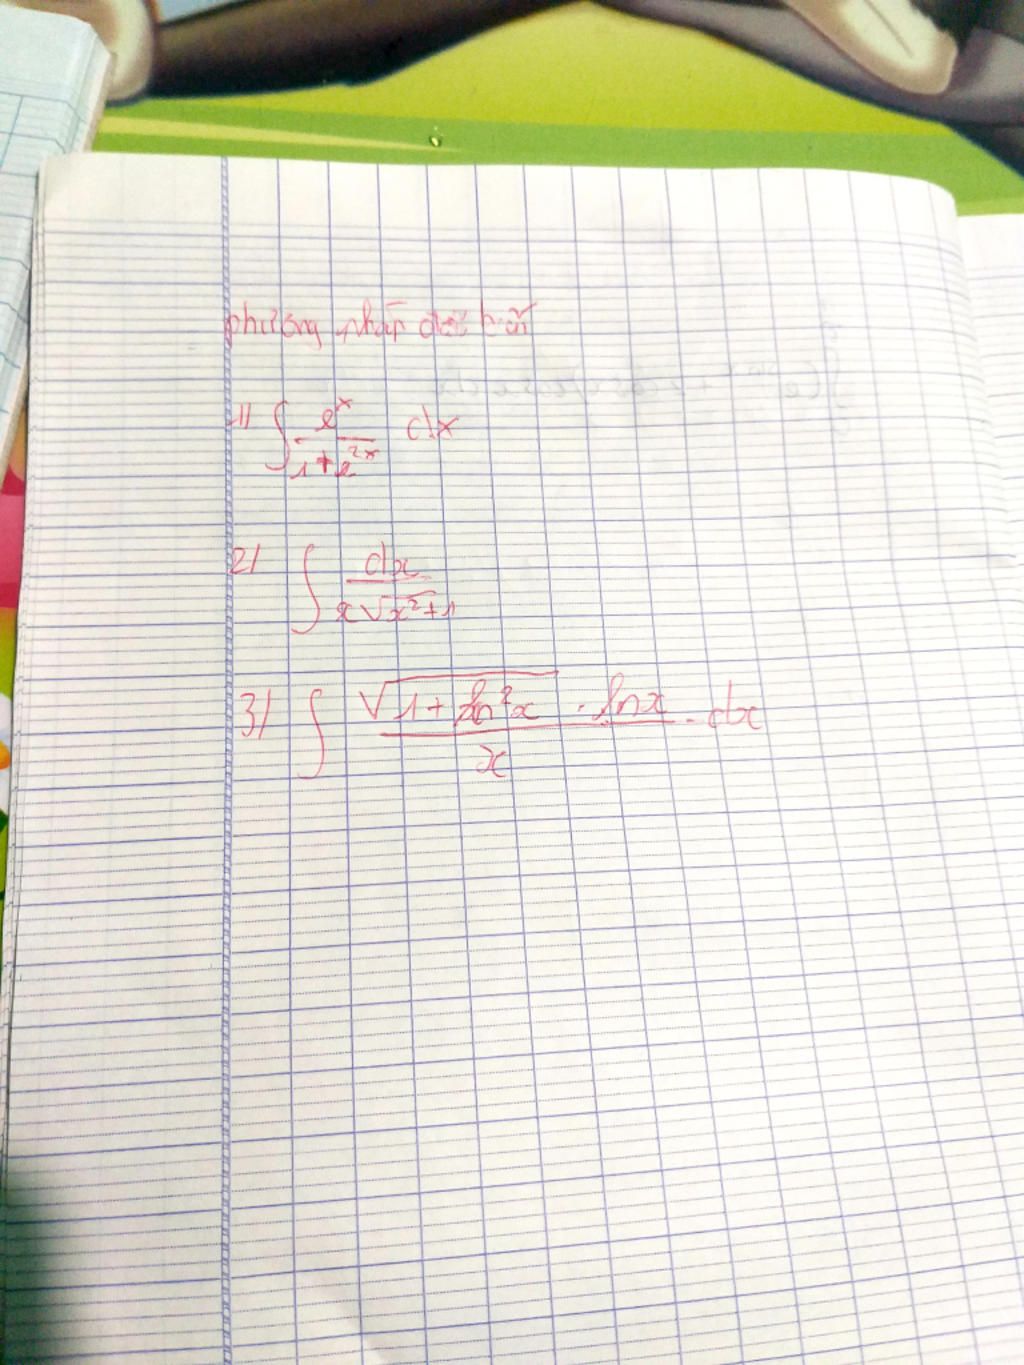 phương pháp đổi biến
1) ∫ e^x / (1+e^{2x}) dx
2) ∫ dx / (x√(x²+1))
3) ∫ (√(1+ln²x) . lnx) / x . dx